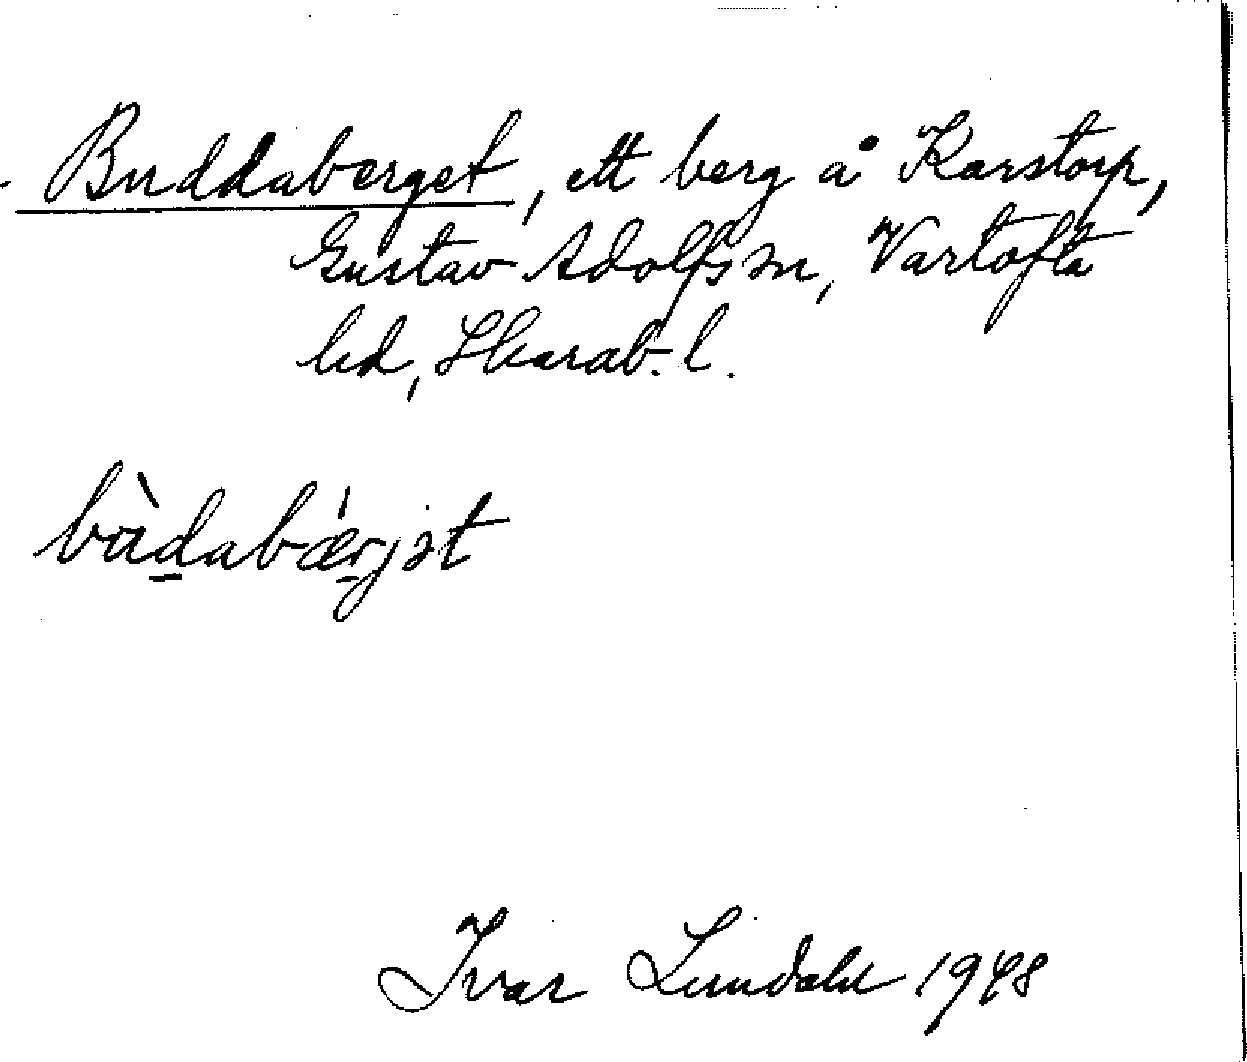 Buddaberget, ett berg å Karstorp,
Gustav Adolfs sn, Vartofta
hd, Skarab. l.
bàdabǽrjət
Ivar Lundahl 1948